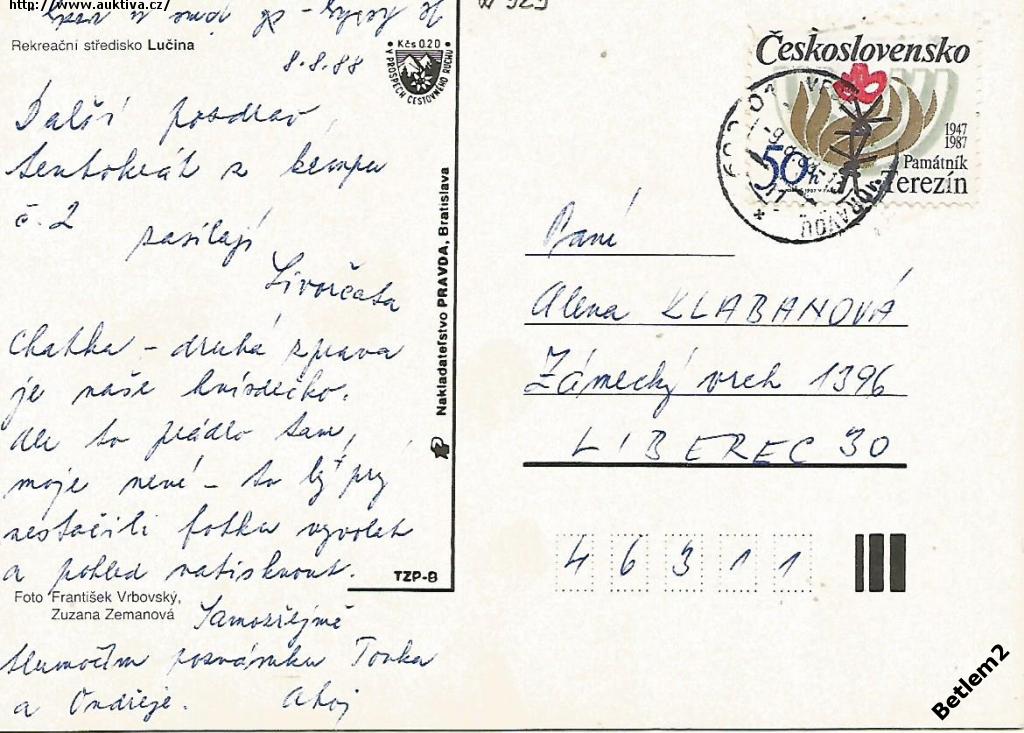 http://www.auktiva.cz/
Rekreační středisko Lučina
8.8.88
Další pozdrav,
tentokrát z kempu
č. 2 zasílají
Livorčata
Chatka – druhá zprava
je naše hnízdečko.
Ale to prádlo tam,
moje není – to by prý
nestačili fotku vyvolat
a pohled natisknout.
Foto František Vrbovský,
Zuzana Zemanová
Samozřejmě
tlumočím pozvánku Tonka
a Ondřeje. Ahoj
Kčs 0.20
V PROSPĚCH CESTOVNÉHO RUCHU
Nakladateľstvo PRAVDA, Bratislava
TZP-8
Československo
1947
1987
Památník
Terezín
50
Paní
Alena KLABANOVÁ
Zámecký vrch 1396
LIBEREC 30
46311
Betlem2